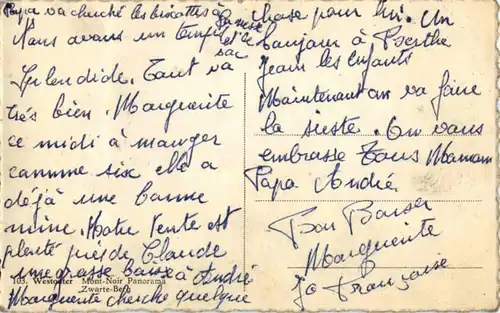 Papa va cherché les biscottes à
Nans avans un temps
Splendide. Taut va
très bien. Marguerite
ce midi à manger
camme six elle a
déjà une banne
mine. Natre tente est
planté près de Claude
une grasse baise à André
Marguerite cherche quelque
chase pour lui. Un
banjaur à Berthe
Jean les enfants
Maintenant an va faire
la sieste. On vaus
embrasse Taus Maman
Papa André
Bon Baiser
Marguerite
Françoise
103. Westouter Mont-Noir Panorama
Zwarte-Berg